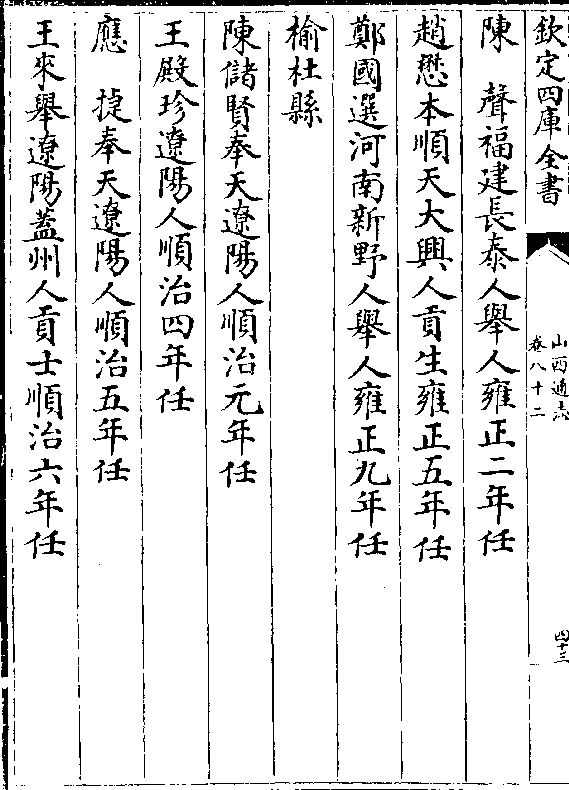 欽定四庫全書
山西通志
卷八十二
四十三
陳　聲福建長泰人舉人雍正二年任
趙懋本順天大興人貢生雍正五年任
鄭國選河南新野人舉人雍正九年任
榆社縣
陳儲賢奉天遼陽人順治元年任
王殿珍遼陽人順治四年任
應　捷奉天遼陽人順治五年任
王來舉遼陽蓋州人貢士順治六年任